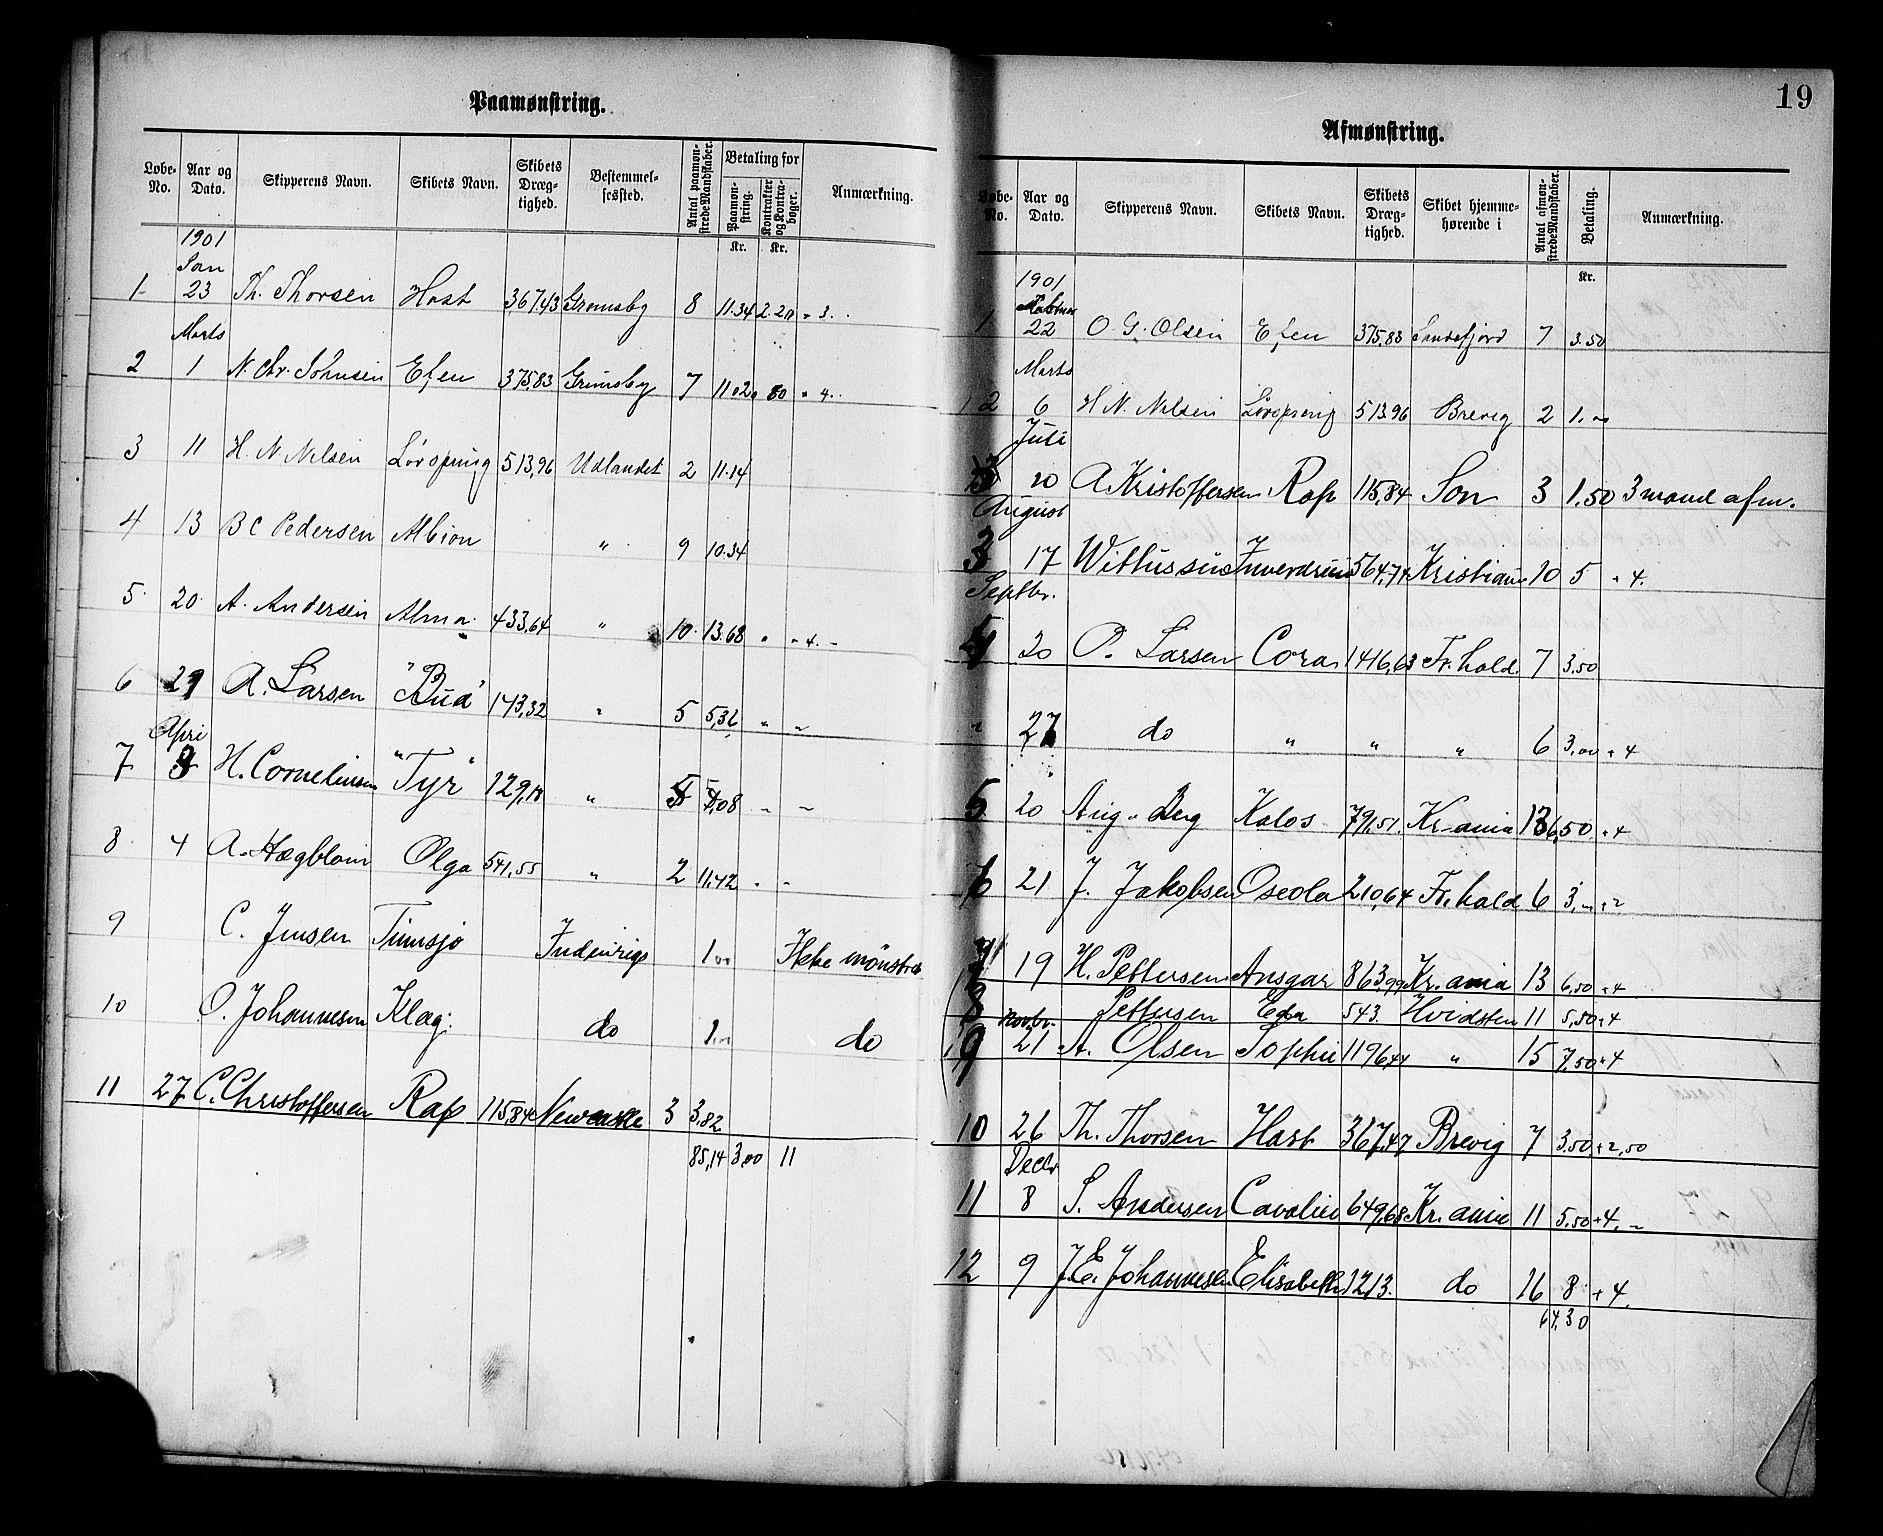 Paamønstring.
Løbe-No. Aar og Dato. Skipperens Navn. Skibets Navn. Skibets Dræg-tighed. Bestemmel-sessted. Antal paamøn-strede Mandskaber. Betaling for Paamøn-string. Kontrakter og Kontra-bøger. Anmærkning.
Kr. Kr.
1901
Jan
1 23 Th. Thorsen Hast 367,43 Grimsby 8 11.34 2.20 " 3.
Marts
2 1 N. Chr. Johnsen Efen 375,83 Grimsby 7 11.02 80 " 4.
3 11 H. N. Nilsen Lövspring 513,96 Udlandet 2 11.14
4 13 B C Pedersen Albion " 9 10.34
5 20 A. Andersen Alma 433,64 " 10 13.68 " " 4. -
6 29 A. Larsen "Bud" 143,32 " 5 5,36 " "
Apri
7 3 H. Corneliusen "Tyr" 129,18 " 5,08 " "
8 4 A. Hægblom Olga 541,55 " 2 11,42 " "
9 C. Jensen Indenrigs 1.00 Ikke mönstret
10 O. Johannesen Klag: do 1.00 do
11 27 C. Christoffersen Rap 115,84 Newcastle 3 3,82
85,14 3,00 11
19
Afmønstring.
Løbe-No. Aar og Dato. Skipperens Navn. Skibets Navn. Skibets Dræg-tighed. Skibet hjemme-hørende i Antal afmøn-strede Mandskaber. Betaling. Anmærkning.
Kr.
1901
1 22 O. G. Olsen Efen 375,83 Sandefjord 7 3.50
Marts
2 6 H. N. Nilsen Lövspring 513,96 Brevig 2 1.00
Juli
20 A. Kristoffersen Rap 115,84 Son 3 1,50 3 mand afm.
August
17 564,74 Kristiania 10 5 " 4.
Septbr.
4 20 P. Larsen Cora 1416,63 Fr.hald. 7 3,50
" 27 do " " " 6 3,00 + 4
5 20 Aug. Berg Kalos 791,51 Kr.ania 13 6,50 + 4
6 21 J. Jakobsen Oseola 210,64 Fr.hald 6 3,00 + 2
7 19 H. Pettersen Ansgar 863,99 Kr.ania 13 6,50 + 4
8 Pettersen 543. Hvidsten 11 5,50 + 4
Novbr.
9 21 A. Olsen Sophie 1196,44 " 15 7,50 + 4
10 26 Th. Thorsen Hast 367,47 Brevig 7 3,50 + 2,50
Decbr
11 8 S. Andersen Cavalier 649,68 Kr.ania 11 5,50 + 4. -
12 9 J. E. Johannesen Elisabeth 1213. do 16 8 + 4.
64,30